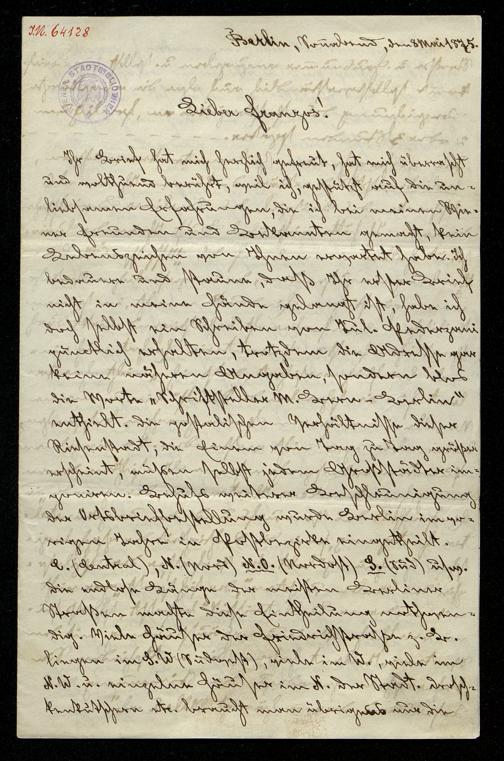 I.N. 64128
Berlin, Sonnabend, den 8 Mai 1875.
WIENER STADTBIBLIOTHEK
Lieber Franzos!
Ihr Brief hat mich herzlich gefreut, hat mich überrascht
und wohlthuend berührt, weil ich, gestützt auf die un-
liebsamen Erfahrungen, die ich bei meinen Wie-
ner Freunden und Bekannten gemacht, kein
Lebenszeichen von Ihnen erwartet habe. Ich
bedauere und staune, daß Ihr erster Brief
nicht in meine Hände gelangt ist, habe ich
doch selbst ein Schreiben von
pünktlich erhalten, trotzdem die Adresse gar
keine nähern Angaben, sondern blos
die Worte „Schriftsteller M. Stern - Berlin"
enthielt. Die postalischen Verhältnisse dieser
Riesenstadt, die Einem von Tag zu Tag größer
erscheint, müssen selbst jedem Großstädter im-
poniren. Behufs weiterer Beschleunigung
der Ortsbriefbestellung wurde Berlin im vo-
rigen Jahre in Postbezirke eingetheilt.
C. (Central), N. (Nord) N.O. (Nordost) S. (Süd) usw.
die endlose Länge der meisten Berliner
Straßen machte diese Eintheilung nothwen-
dig. Viele Häuser der Friedrichstraße z. B.
liegen im S.W. (Südwest), viele im W., viele im
N.W. u. einzelne Häuser im N. der Stadt. Drosch-
kenkutscher etc. braucht man übrigens nur die